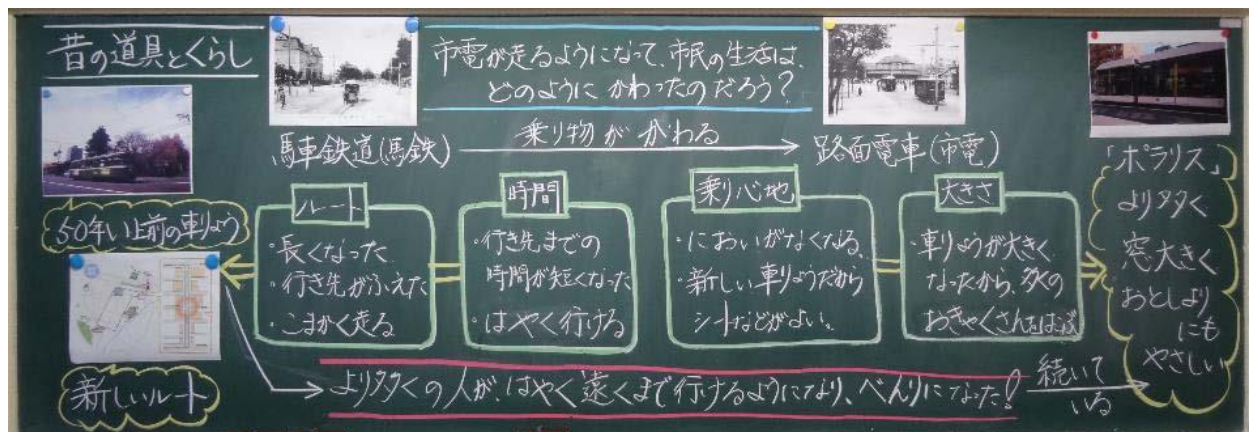 昔の道具とくらし
市電が走るようになって、市民の生活は、
どのようにかわったのだろう?
馬車鉄道(馬鉄)
乗り物がかわる
路面電車(市電)
50年い上前の車りょう
新しいルート
ルート
・長くなった
・行き先がふえた
・こまかく走る
時間
・行き先までの
時間が短くなった
・はやく行ける
乗り心地
・においがなくなる。
・新しい車りょうだから
シートなどがよい。
大きさ
・車りょうが大きく
なったから、多くの
おきゃくさんをはこぶ
「ポラリス」
より多く
窓大きく
おとしより
にも
やさしい
より多くの人が、はやく遠くまで行けるようになり、べんりになった!
続いて
いる